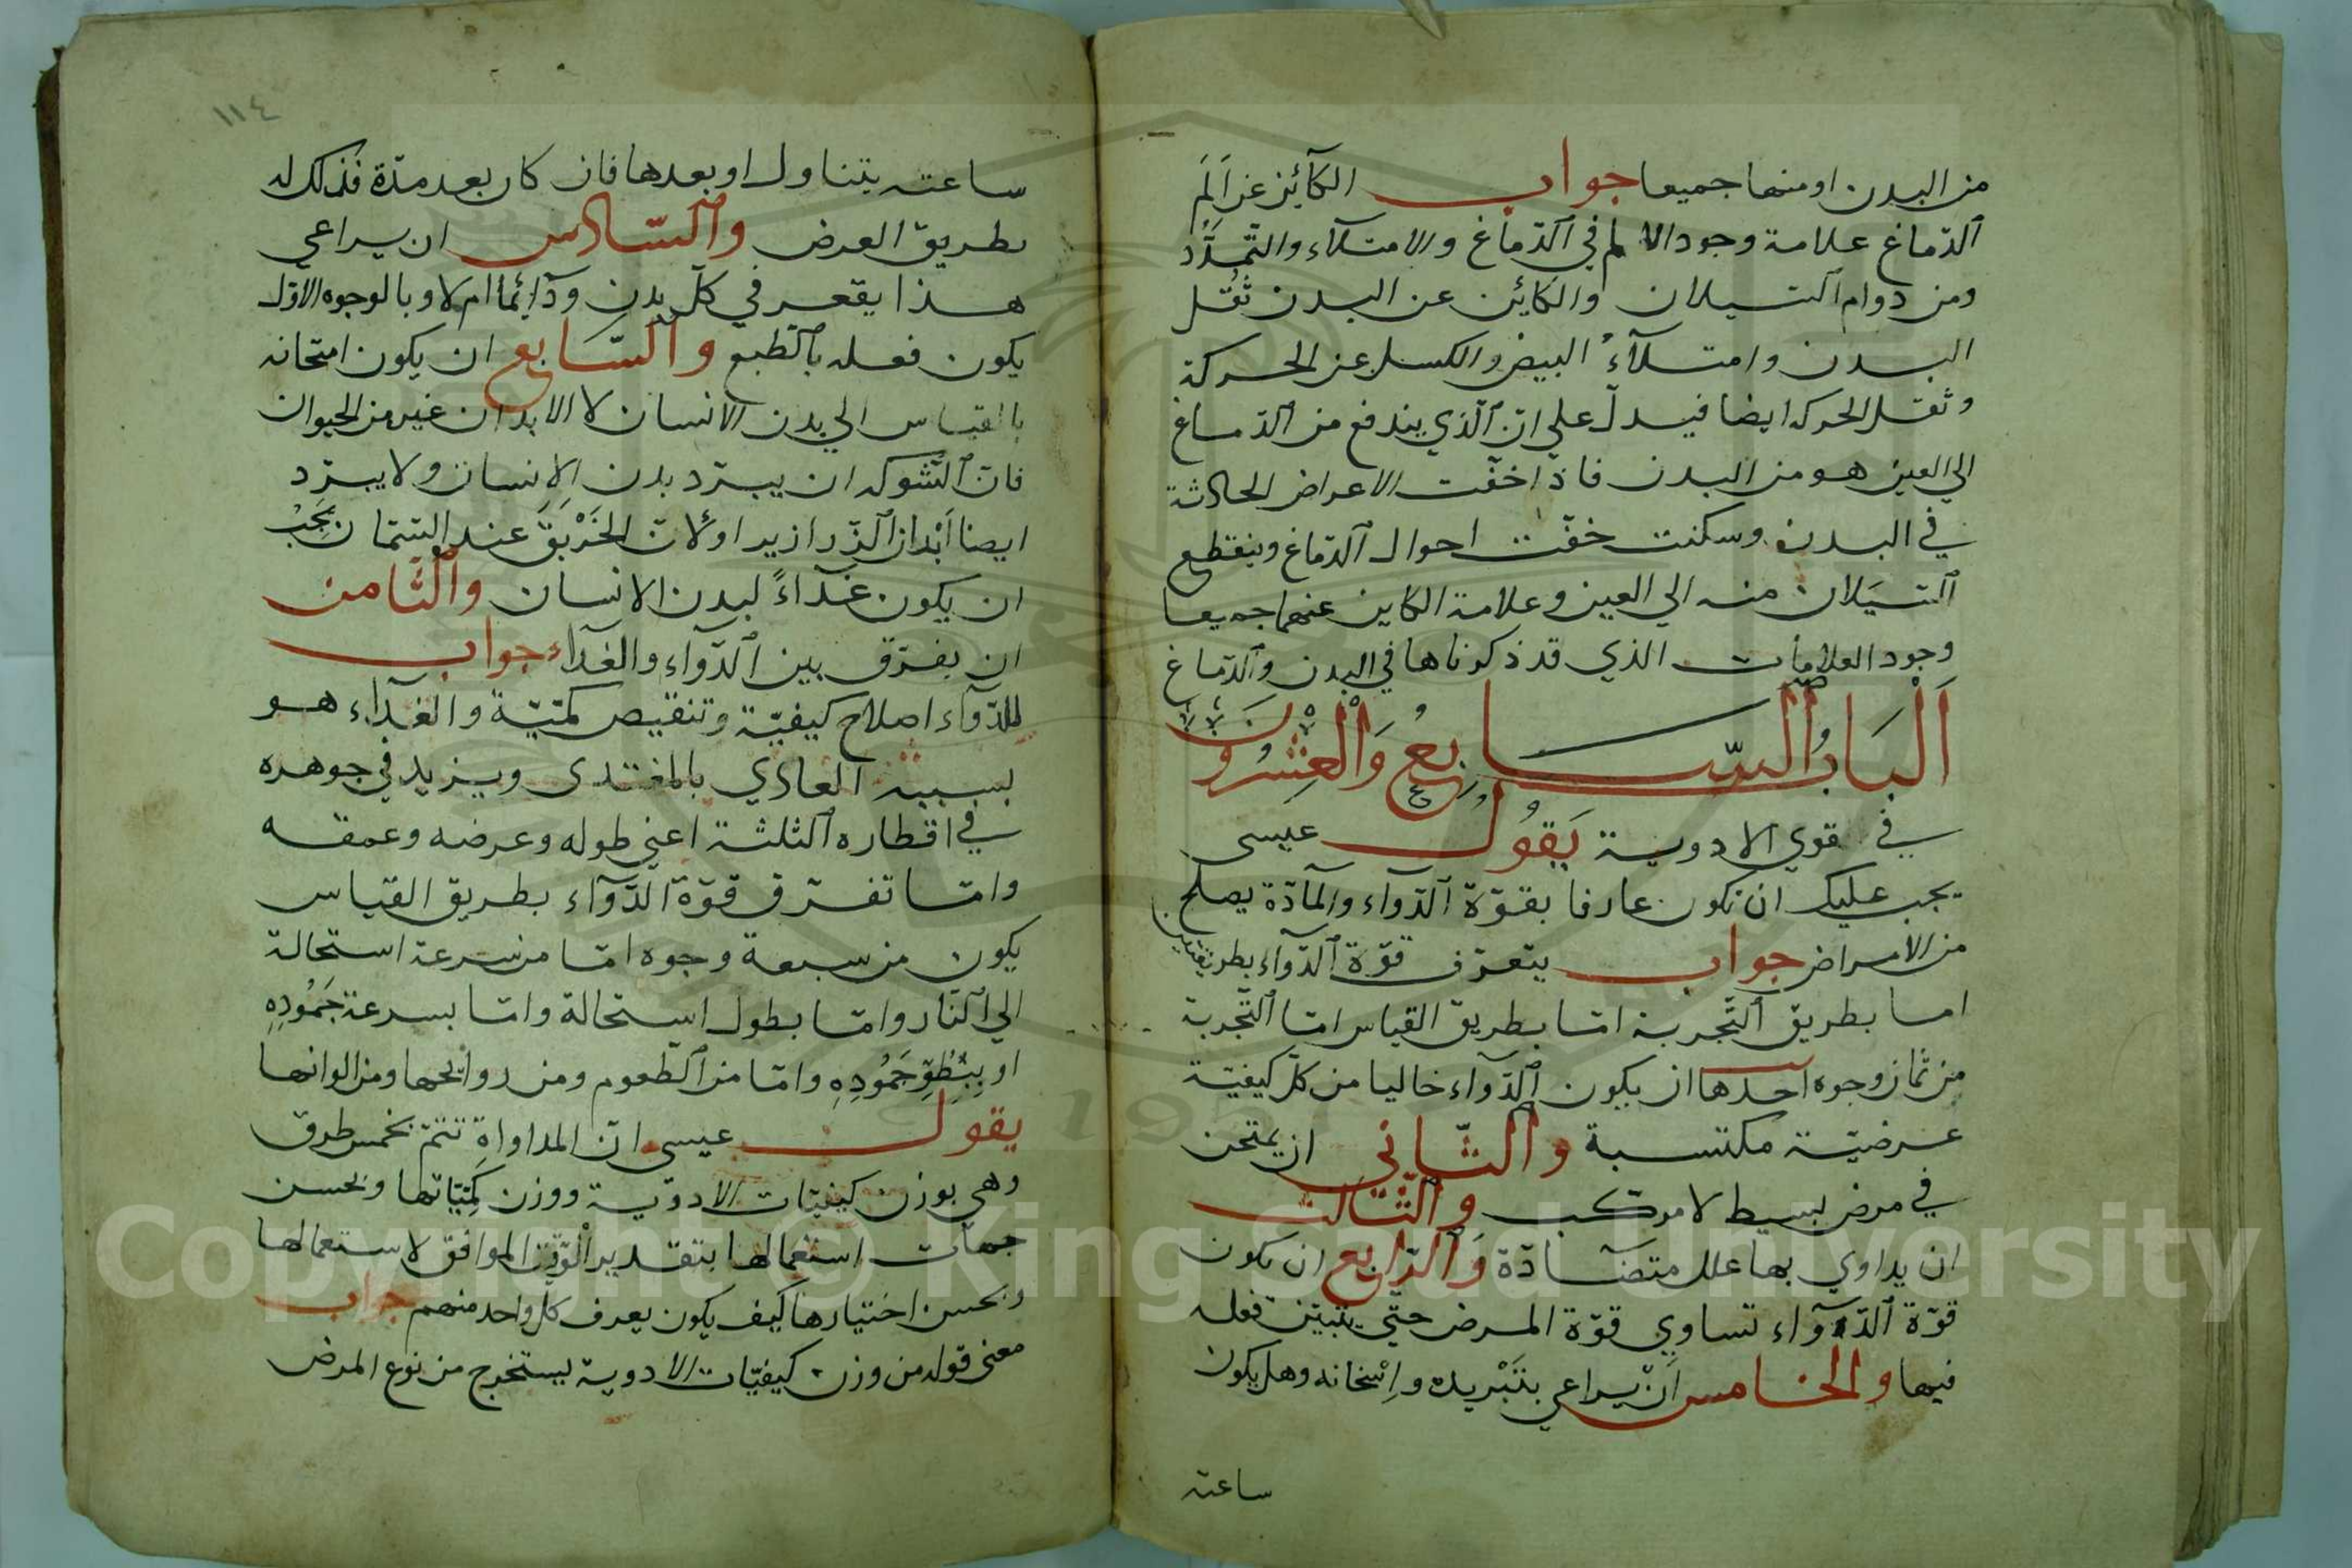 من البدن او منهما جميعا جواب الكآئن عن اَلَم
ٱلدّماغ علامة وجود الالم في ٱلدّماغ والامتلآء والتّمدّد
ومن دوام ٱلتسيلان والكائن عن البدن ثقل
البدن وامتلآء البيض والكسل عن الحركة
وثقل الحركه ايضا فيدلّ على انّ ٱلّذي يندفع من ٱلدّماغ
الي العين هو من البدن فاذا خفّت الاعراض الحادثة
في البدن وسكنت خفّت احوال ٱلدّماغ وينقطع
ٱلتسيَلان منه الي العين وعلامة الكاين عنهما جميعا
وجود العلامات الذي قد ذكرناها في البدن وٱلدّماغ
اَلْبَابُ ٱلسّابِعُ وَالْعِشْرُونَ
في قوي الادوية يَقُولُ عيسى
يجب عليك ان تكون عارفا بقوّة ٱلدّوآء والمآدّة يصلح
من الامراض جواب يتعرّف قوّة ٱلدّوآء بطريقتين
اما بطريق ٱلتّجربة امّا بطريق القياس امّا ٱلتّجربة
من ثمان وجوه آحدها ان يكون ٱلدّوآء خاليا من كلّ كيفيّة
عرضيّة مكتسبة وٱلثّاني ان يمتحن
في مرض بسيط لا مركّب وٱلثّالث
ان يداوي بها علل متضآدّة وَٱلرّابع ان يكون
قوّة ٱلدّوآء تساوي قوّة المرض حتّي يتبيّن فعله
فيها والخامس اَنْ يراعي بتَبْريده واِسْخانه وهل يكون
ساعته
١١٤
ساعته يتناول او بعدها فان كان بعد مدّة فذلك له
بطريق العرض وٱلسّادس ان يراعي
هذا يقع في كلّ بدن ودآئما ام لا وبالوجوه الاوّل
يكون فعله بٱلطّبع وٱلسّابع ان يكون امتحانه
بالقياس الي بدن الانسان لا الابدان غير من الحيوان
فانّ ٱلشوكه ان يبرّد بدن الانسان ولا يبرّد
ايضا اَبْدان ٱلزّرازير او لانّ الخَرْبَقَ عند السّمان يَجِبُ
ان يكون غذآءً لبدن الانسان وٱلثّامن
ان يفرّق بين ٱلدّوآء والغذآء جواب
للدّوآء اصلاح كيفيّة وتنقيص كمّيّة والغذآء هو
بسببه الغاذي بالمغتذى ويزيد في جوهره
في اقطاره ٱلثلثة اعني طوله وعرضه وعمقه
وامّا تفرّق قوّة ٱلدّوآء بطريق القياس
يكون من سبعة وجوه امّا من سرعة استحالة
الي ٱلنّار وامّا بطول استحالة وامّا بسرعة جَمُودِهِ
او بِبُطوِّ جَمُودِهِ وامّا من ٱلطّعوم ومن روايحها ومن الوانها
يقول عيسى انّ المداواة تتمّ بخمس طرق
وهي بوزن كيفيّات الادوية ووزن كَمّيّاتها وبحسن
جهات استعمالها بتقدير الْوَقت الموافق لاستعمالها
وبحسن اختيارها كيف يكون يعرف كل واحد منهم جواب
معنى قوله من وزن كيفيّات الادوية يستخرج من نوع المرض
Copyright © King Saud University
1957